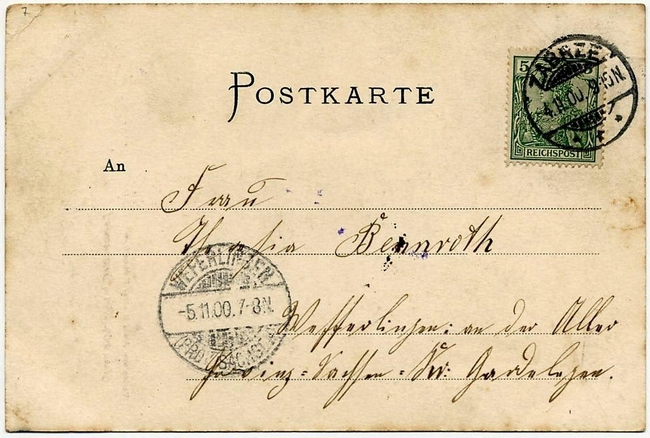 7
POSTKARTE
5
REICHSPOST
ZABRZE
4.11.00.
N.
An
Frau
Bennroth
WEFERLINGEN
-5.11.00.7-8N.
(PROV. SACHSEN)
Wefferlingen: an der Aller
Provinz-Sachsen-Kr: Gardelegen.